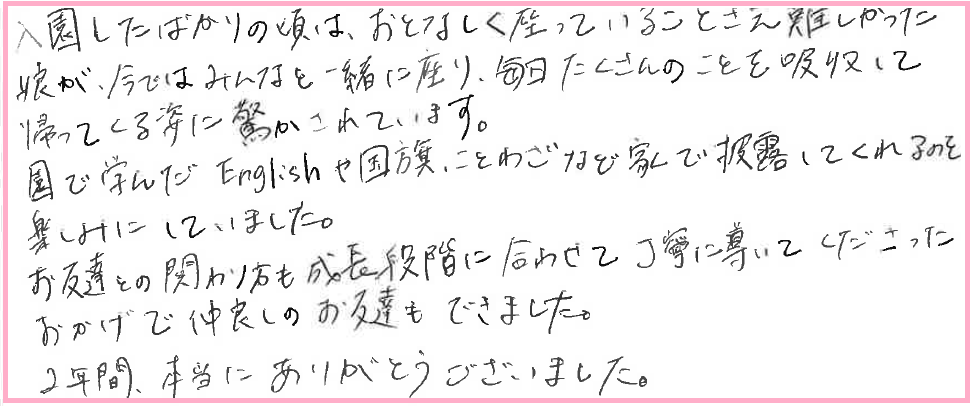 入園したばかりの頃は、おとなしく座っていることさえ難しかった
娘が、今ではみんなと一緒に座り、毎日たくさんのことを吸収して
帰ってくる姿に驚かされています。
園で学んだEnglishや国旗、ことわざなど家で披露してくれるのを
楽しみにしていました。
お友達との関わり方も成長段階に合わせて丁寧に導いてくださった
おかげで仲良しのお友達もできました。
2年間、本当にありがとうございました。